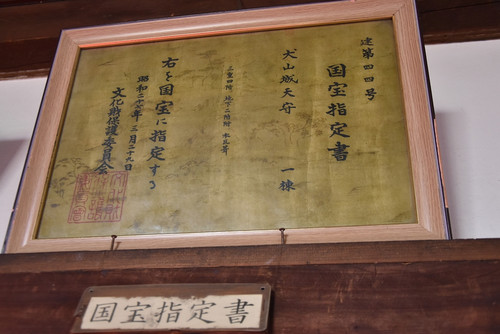 建第四四号
国宝指定書
犬山城天守 一棟
三重四階 地下二階附 本瓦葺
右を国宝に指定する
昭和二十七年 三月二十九日
文化財保護委員会
国宝指定書